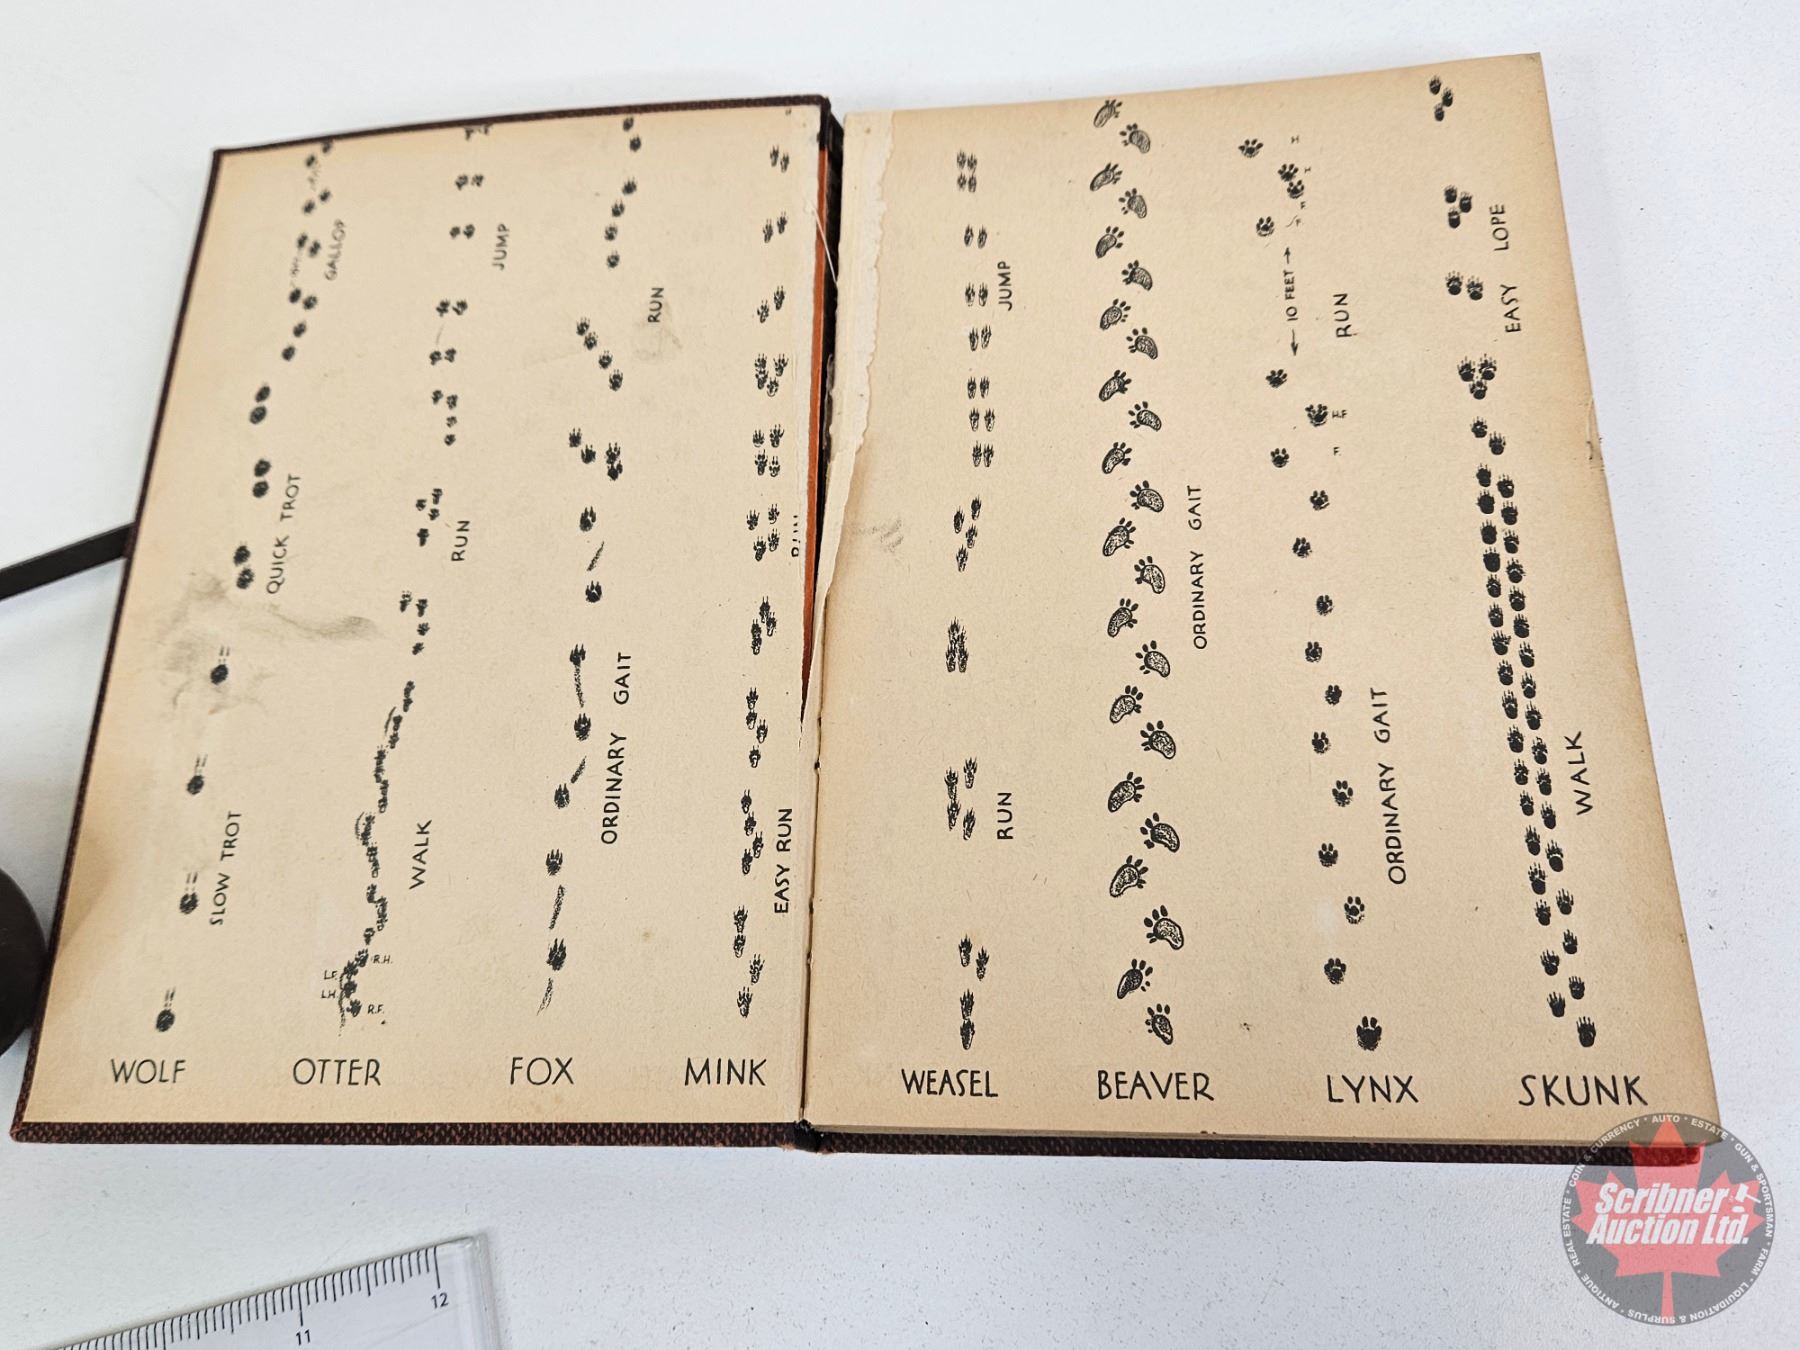 GALLOP
QUICK TROT
SLOW TROT
WOLF
JUMP
RUN
WALK
L.F.
R.H.
L.H.
R.F.
OTTER
RUN
ORDINARY GAIT
FOX
RUN
EASY RUN
MINK
JUMP
RUN
WEASEL
ORDINARY GAIT
BEAVER
10 FEET
RUN
ORDINARY GAIT
LYNX
EASY LOPE
WALK
SKUNK
11
12
Scribner
Auction Ltd.
COIN & CURRENCY • AUTO • ESTATE • GUN & SPORTSMAN • FARM • LIQUIDATION & SURPLUS • ANTIQUE • REAL ESTATE •